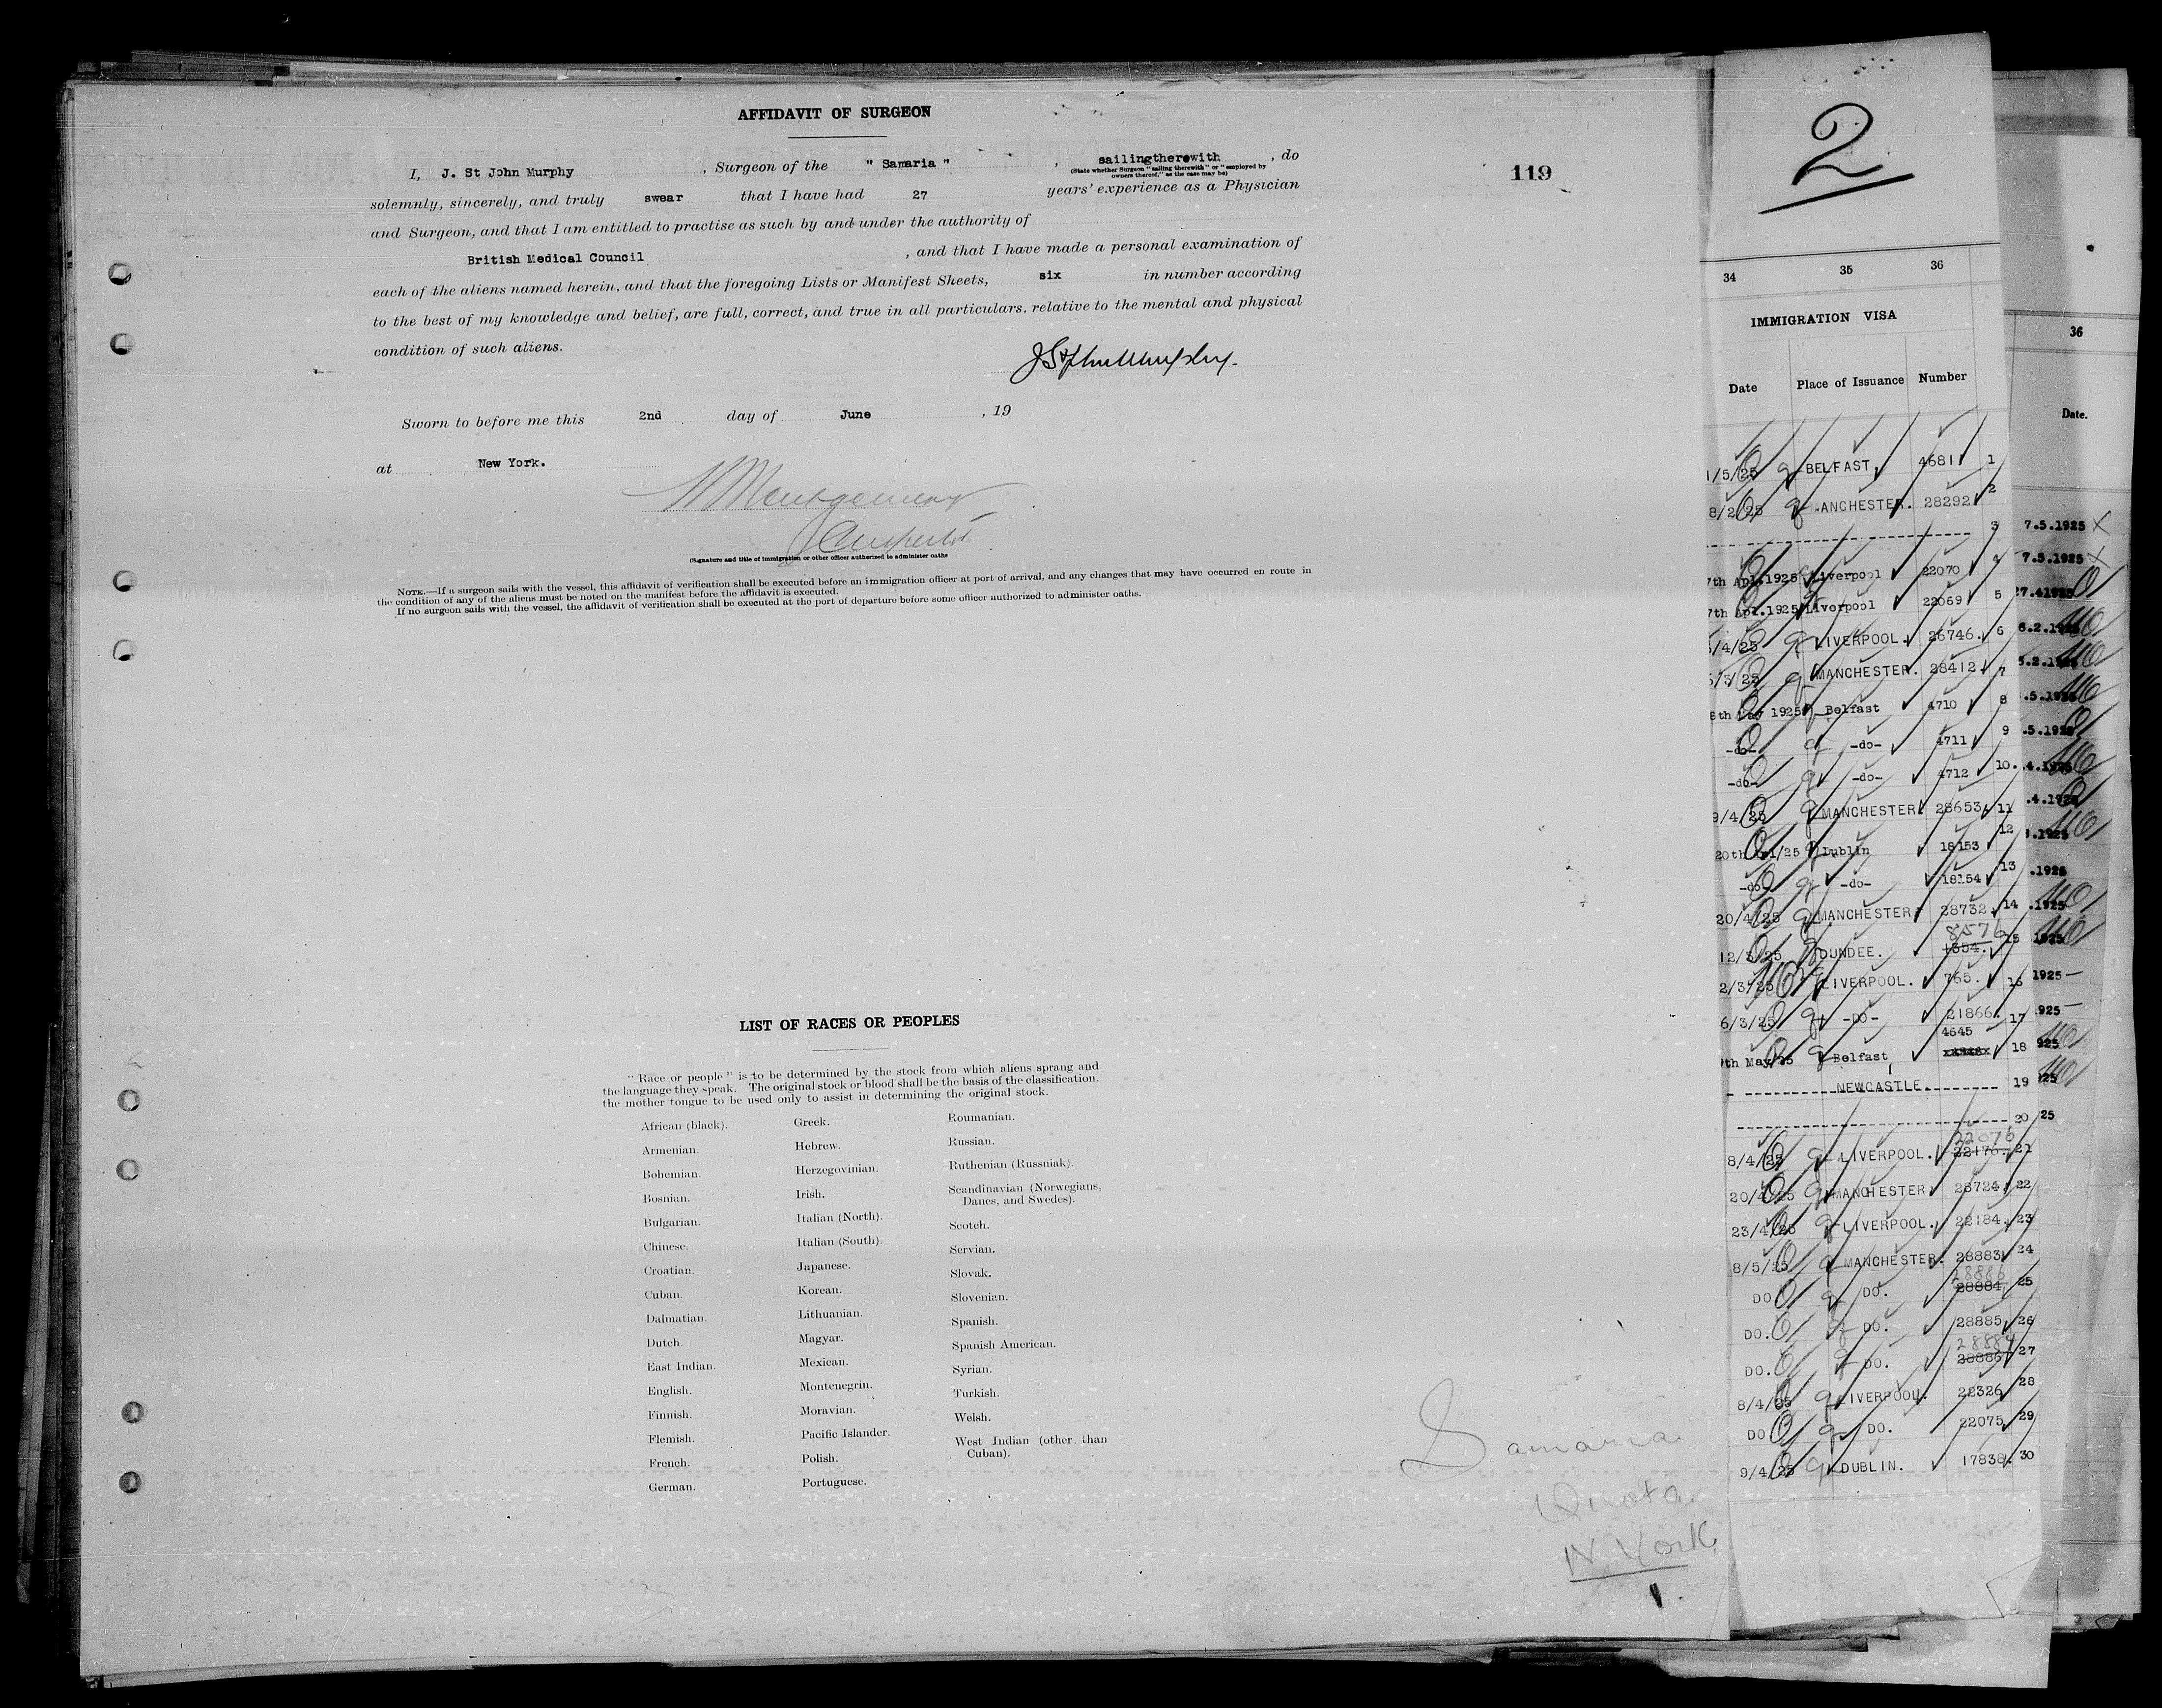 AFFIDAVIT OF SURGEON
119
I, J. St John Murphy, Surgeon of the "Samaria", sailingtherewith, do
(State whether Surgeon "sailing therewith" or "employed by
owners thereof," as the case may be)
solemnly, sincerely, and truly swear that I have had 27 years' experience as a Physician
and Surgeon, and that I am entitled to practise as such by and under the authority of
British Medical Council, and that I have made a personal examination of
each of the aliens named herein, and that the foregoing Lists or Manifest Sheets, six in number according
to the best of my knowledge and belief, are full, correct, and true in all particulars, relative to the mental and physical
condition of such aliens.
J St John Murphy.
Sworn to before me this 2nd day of June, 19
at New York.
Montgomery
(Signature and title of immigration or other officer authorized to administer oaths
NOTE.—If a surgeon sails with the vessel, this affidavit of verification shall be executed before an immigration officer at port of arrival, and any changes that may have occurred en route in
the condition of any of the aliens must be noted on the manifest before the affidavit is executed.
If no surgeon sails with the vessel, the affidavit of verification shall be executed at the port of departure before some officer authorized to administer oaths.
LIST OF RACES OR PEOPLES
"Race or people" is to be determined by the stock from which aliens sprang and
the language they speak. The original stock or blood shall be the basis of the classification,
the mother tongue to be used only to assist in determining the original stock.
African (black).
Armenian.
Bohemian.
Bosnian.
Bulgarian.
Chinese.
Croatian.
Cuban.
Dalmatian.
Dutch.
East Indian.
English.
Finnish.
Flemish.
French.
German.
Greek.
Hebrew.
Herzegovinian.
Irish.
Italian (North).
Italian (South).
Japanese.
Korean.
Lithuanian.
Magyar.
Mexican.
Montenegrin.
Moravian.
Pacific Islander.
Polish.
Portuguese.
Roumanian.
Russian.
Ruthenian (Russniak).
Scandinavian (Norwegians,
Danes, and Swedes).
Scotch.
Servian.
Slovak.
Slovenian.
Spanish.
Spanish American.
Syrian.
Turkish.
Welsh.
West Indian (other than
Cuban).
Samaria
Quota
N. York
1.
2
34 35 36
IMMIGRATION VISA
Date Place of Issuance Number
1/5/25 BELFAST, 4681 1
8/2/25 ANCHESTER. 28292 2
3
7th Apl.1925 Liverpool 22070 4
7th Apl.1925 Liverpool 22069 5
/4/25 LIVERPOOL. 26746. 6
/3/25 MANCHESTER. 28412. 7
8th May 1925 Belfast 4710 8
-do- -do- 4711 9
-do- -do- 4712 10.
9/4/25 MANCHESTER. 28653. 11
20th Apl/25 Dublin 18153 12
-do- -do- 18154 13
20/4/25 MANCHESTER. 28732. 14
8576
12/3/25 DUNDEE. 1354. 15
2/3/25 LIVERPOOL. 765. 16
6/3/25 -DO- 21866. 17
4645
th May/25 Belfast 18
NEWCASTLE. 19
20
22076
8/4/25 LIVERPOOL. 22176. 21
20/4/25 MANCHESTER. 28724. 22
23/4/25 LIVERPOOL. 22184. 23
8/5/25 MANCHESTER. 28883. 24
28886
DO DO. 28884. 25
DO. DO. 28885. 26
28884
DO. DO. 28886 27
8/4/25 LIVERPOOL. 22326 28
DO DO. 22075 29
9/4/25 DUBLIN. 17838. 30
36
Date.
7.5.1925
7.5.1925
27.41925
6.2.1925
5.2.1925
.5.1925
.5.1925
.4.1925
.4.1925
.1925
.1925
.1925
1925
1925
925
925
25
25